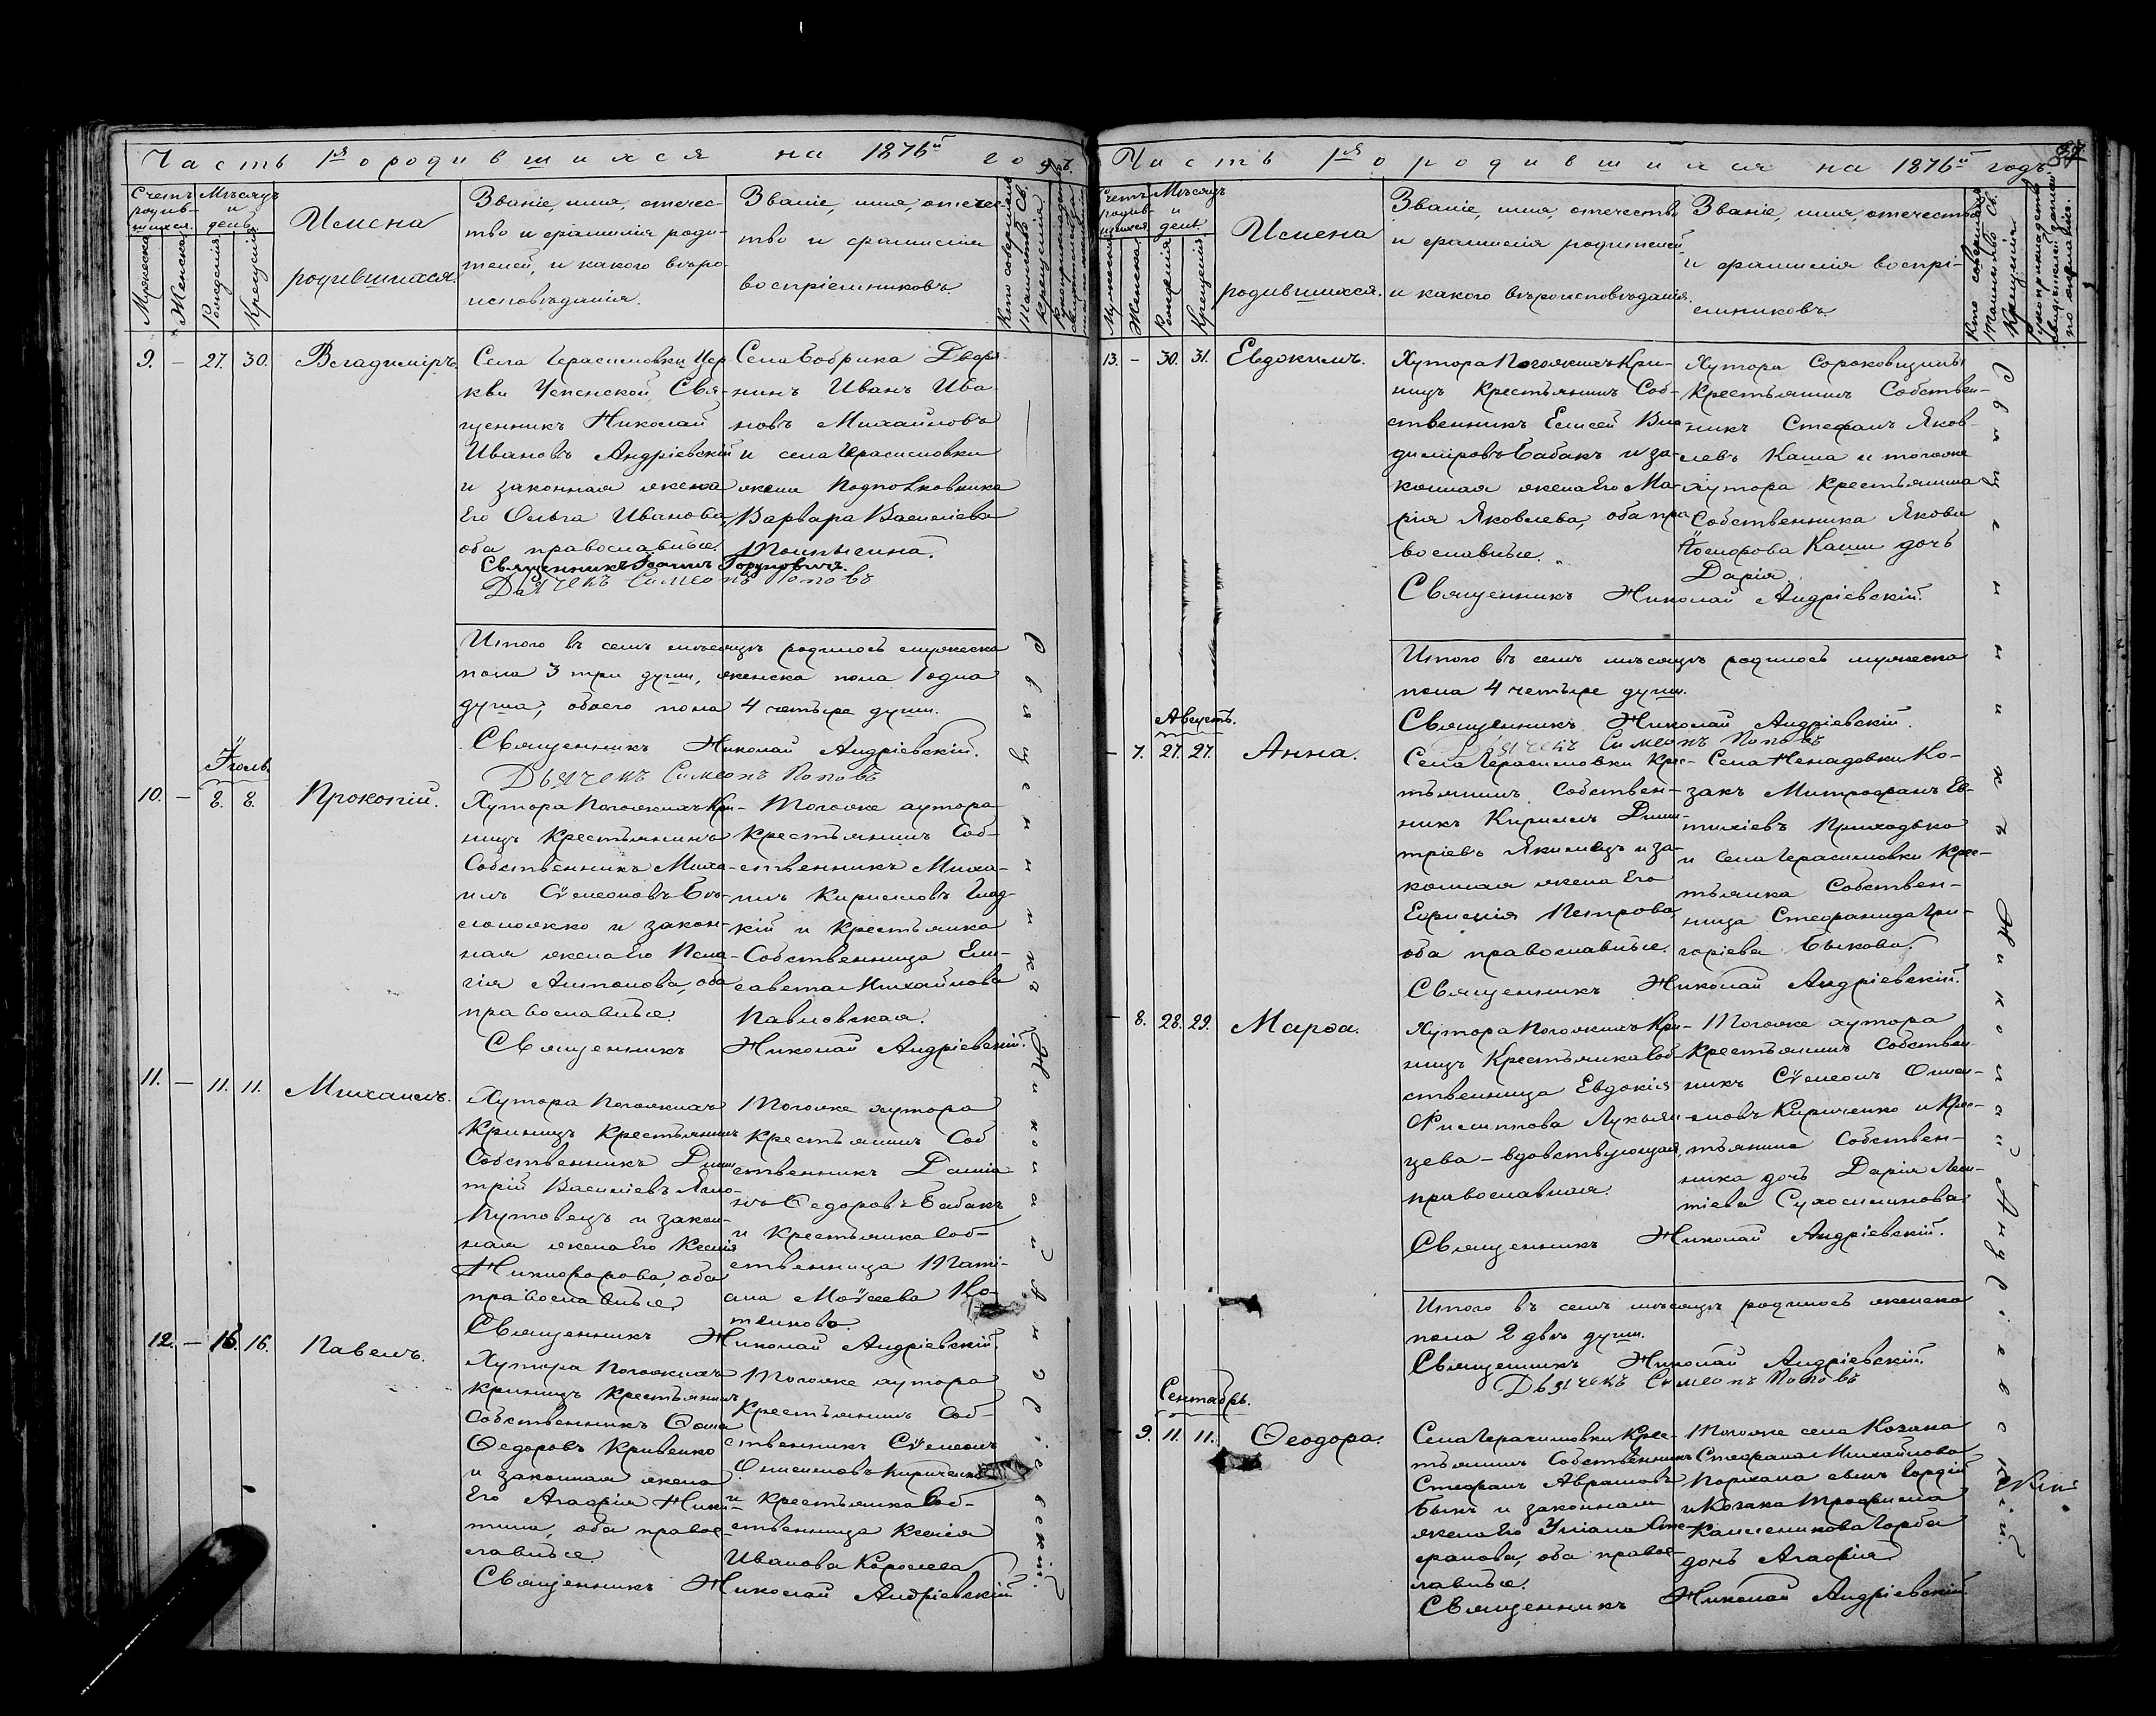 Часть 1я о родившихся на 1876й годъ.
Счетъ родив-шихся.
Мѣсяцъ и день
Мужеска
Женска
Рожденія.
Крещенія
Имена
родившихся.
Званіе, имя, отечес-
тво и фамилія роди-
телей, и какого вѣро-
исповѣданія.
Званіе, имя, отечес-
тво и фамилія
воспріемниковъ.
Кто совершалъ
таинство Св.
Крещенія
9. — 27. 30. Владиміръ.
Села Герасимовки Цер
кви Успенской, Свя-
щенникъ Николай
Ивановъ Андріевскій
и законная жена
Его Ольга Иванова,
оба православные.
Села Бобрика Дворя
нинъ Иванъ Ива-
новъ Михайловъ
и села Герасимовки
жена Подполковника
Варвара Василіева
Священникъ Іоаннъ
Дьячекъ Симеонъ Поповъ
Итого въ семъ мѣсяцѣ родилось мужеска
пола 3 три души, женска пола 1 одна
душа, обоего пола 4 четыре души.
Священникъ Николай Андріевскій.
Дьячекъ Симеонъ Поповъ
Іюль.
10. — 8. 8. Прокопій.
Хутора Погожихъ Кри-
ницъ Крестьянинъ
Собственникъ Миха-
илъ Сѵмеоновъ Бѣ-
и закон-
ная жена Его Пела-
гія Антонова, оба
православные.
Тогоже хутора
Крестьянинъ Соб-
ственникъ Миха-
илъ Кирилловъ Глад-
кій и Крестьянка
Собственница Ели-
савета Михайлова
Павловская.
Священникъ Николай Андріевскій.
11. — 11. 11. Михаилъ.
Хутора Погожихъ
Криницъ Крестьянинъ
Собственникъ Дими
трій Василіевъ
и закон-
ная жена Его Ксенія
Никифорова, оба
православные.
Тогоже хутора
Крестьянинъ Соб
ственникъ Даніи
лъ Ѳедоровъ Бабакъ
и Крестьянка Соб-
ственница Таті-
ана Моѵсеева Ко-
Священникъ Николай Андріевскій.
12. — 16. 16. Павелъ.
Хутора Погожихъ
Криницъ Крестьянинъ
Собственникъ Ѳома
Ѳедоровъ Кривенко
и законная жена
Его Агафія Ники-
тина, оба правос-
лавные.
Тогоже хутора
Крестьянинъ Соб-
ственникъ Сѵмеонъ
Онисимовъ Кириченко
и Крестьянка Соб-
ственница Ксенія
Иванова Королева
Священникъ Николай Андріевскій
Священникъ Николай Андріевскій.
Часть 1я о родившихся на 1876й годъ
Счетъ родив-шихся
Мѣсяцъ и день.
Мужеска
Женска
Рожденія
Крещенія
Имена
родившихся.
Званіе, имя, отечество
и фамилія родителей
и какого вѣроисповѣданія.
Званіе, имя, отечество
и фамилія воспрі-
емниковъ.
Кто совершалъ
Таинство Св.
Крещенія
Рукоприкладство
свидѣтелей записи
по желанію.
13. — 30. 31. Евдокимъ.
Хутора Погожихъ Кри-
ницъ Крестьянинъ Соб-
ственникъ Елисей Вла
диміровъ Бабакъ и за-
конная жена Его Ма-
рія Яковлева, оба пра
вославные.
Хутора Сороковщины
Крестьянинъ Собствен-
никъ Стефанъ Яков-
левъ Каша и тогоже
хутора Крестьянина
Собственника Якова
Каши дочь
Дарія.
Священникъ Николай Андріевскій.
Итого въ семъ мѣсяцѣ родилось мужеска
пола 4 четыре души.
Священникъ Николай Андріевскій.
Дьячекъ Симеонъ Поповъ
Августъ.
— 7. 27. 27. Анна.
Села Герасимовки Крес-
тьянинъ Собствен-
никъ Кириллъ Дими-
тріевъ Якимецъ и за-
конная жена Его
Евфимія Петрова,
оба православные.
Села Ненадовки Ко-
закъ Митрофанъ Ев-
тихіевъ Приходько
и Села Герасимовки Крес-
тьянка Собствен-
ница Стефанида Гри-
горіева Быкова.
Священникъ Николай Андріевскій.
— 8. 28. 29. Марѳа.
Хутора Погожихъ Кри-
ницъ Крестьянка Соб-
ственница Евдокія
Филиппова Лукьян-
цева — вдовствующая,
православная.
Тогоже хутора
Крестьянинъ Собствен-
никъ СѵмеонъОниси-
мовъ Кириченко и Крес-
тьянина Собствен-
ника дочь Дарія Леон-
тіева Сухосилинова.
Священникъ Николай Андріевскій.
Итого въ семъ мѣсяцѣ родилось женска
пола 2 двѣ души.
Священникъ Николай Андріевскій.
Дьячекъ Симеонъ Поповъ
Сентябрь.
— 9. 11. 11. Ѳеодора.
Села Герасимовки Крес-
тьянинъ Собственникъ
Стефанъ Аврамовъ
Быкъ и законная
жена Его Уліана Сте-
фанова, оба правос-
лавные.
Тогоже села Козака
Стефана Михайлова
сынъ Гордій
и Козака Трофима
Горба
дочь Агафія
Священникъ Николай Андріевскій.
Священникъ Николай Андріевскій.